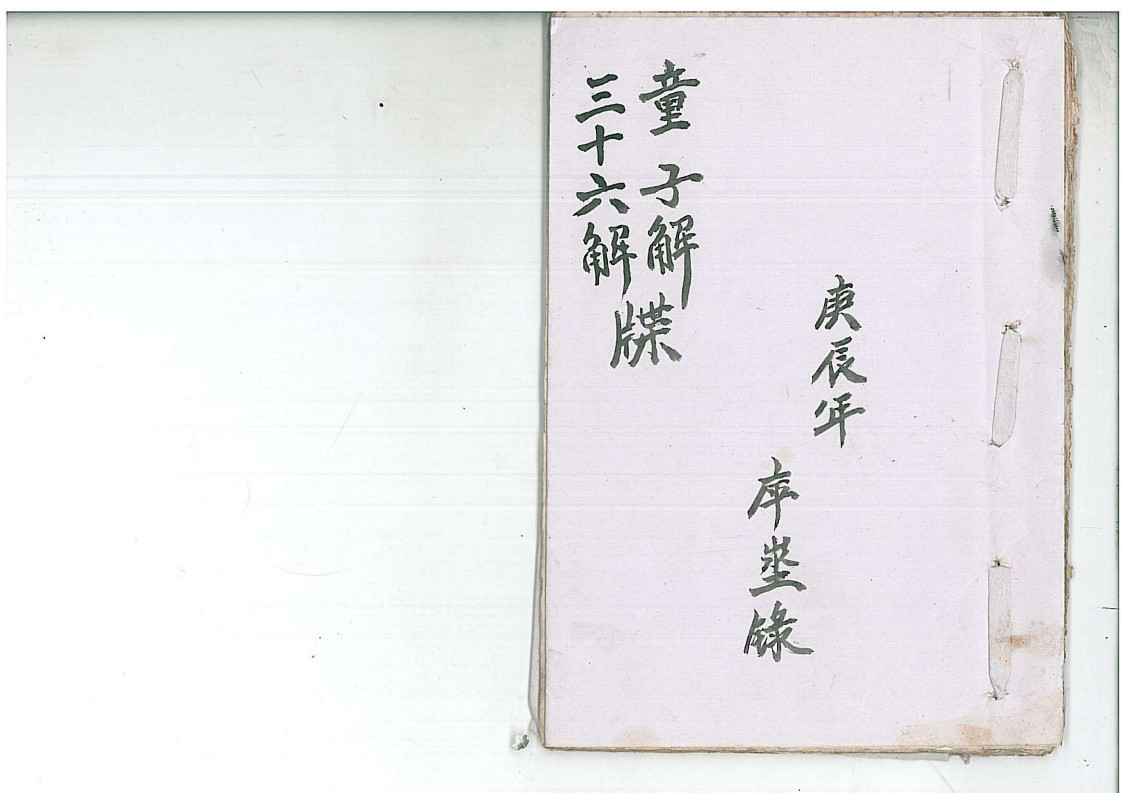 庚辰年
錄
童子解
三十六解
牒